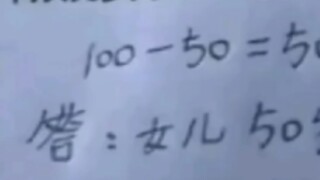 100-50=50
答：女儿50